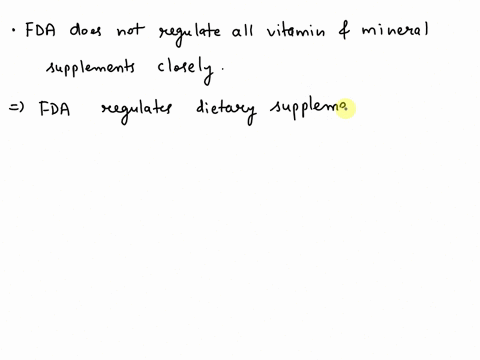 • FDA does not regulate all vitamin & mineral
supplements closely.
=) FDA regulates dietary supplema